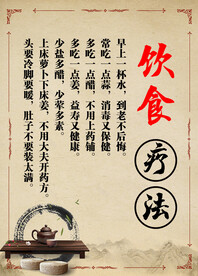 饮食
疗法
早上一杯水，到老不后悔。
常吃一点蒜，消毒又保健。
多吃一点醋，不用上药铺。
多吃一点姜，益寿又健康。
少盐多醋，少荤多素。
上床萝卜下床姜，不用大夫开药方。
头要冷脚要暖，肚子不要装太满。